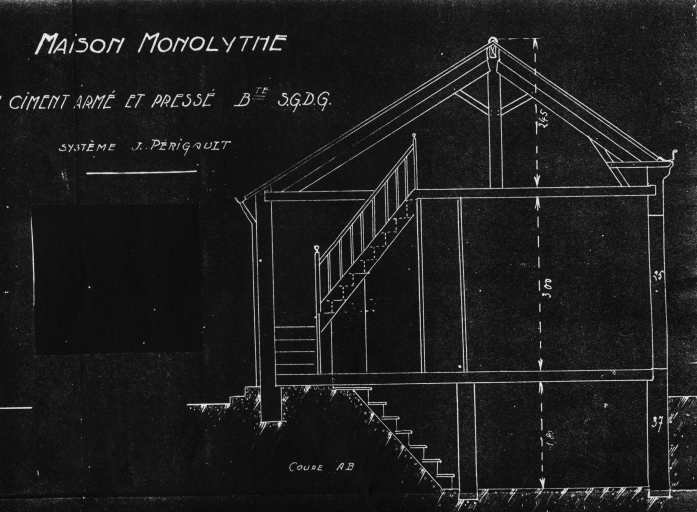 MAISON MONOLYTHE
CIMENT ARMÉ ET PRESSÉ BTE S.G.D.G.
SYSTÈME J. PÉRIGAULT
245
300
25
37
COUPE AB